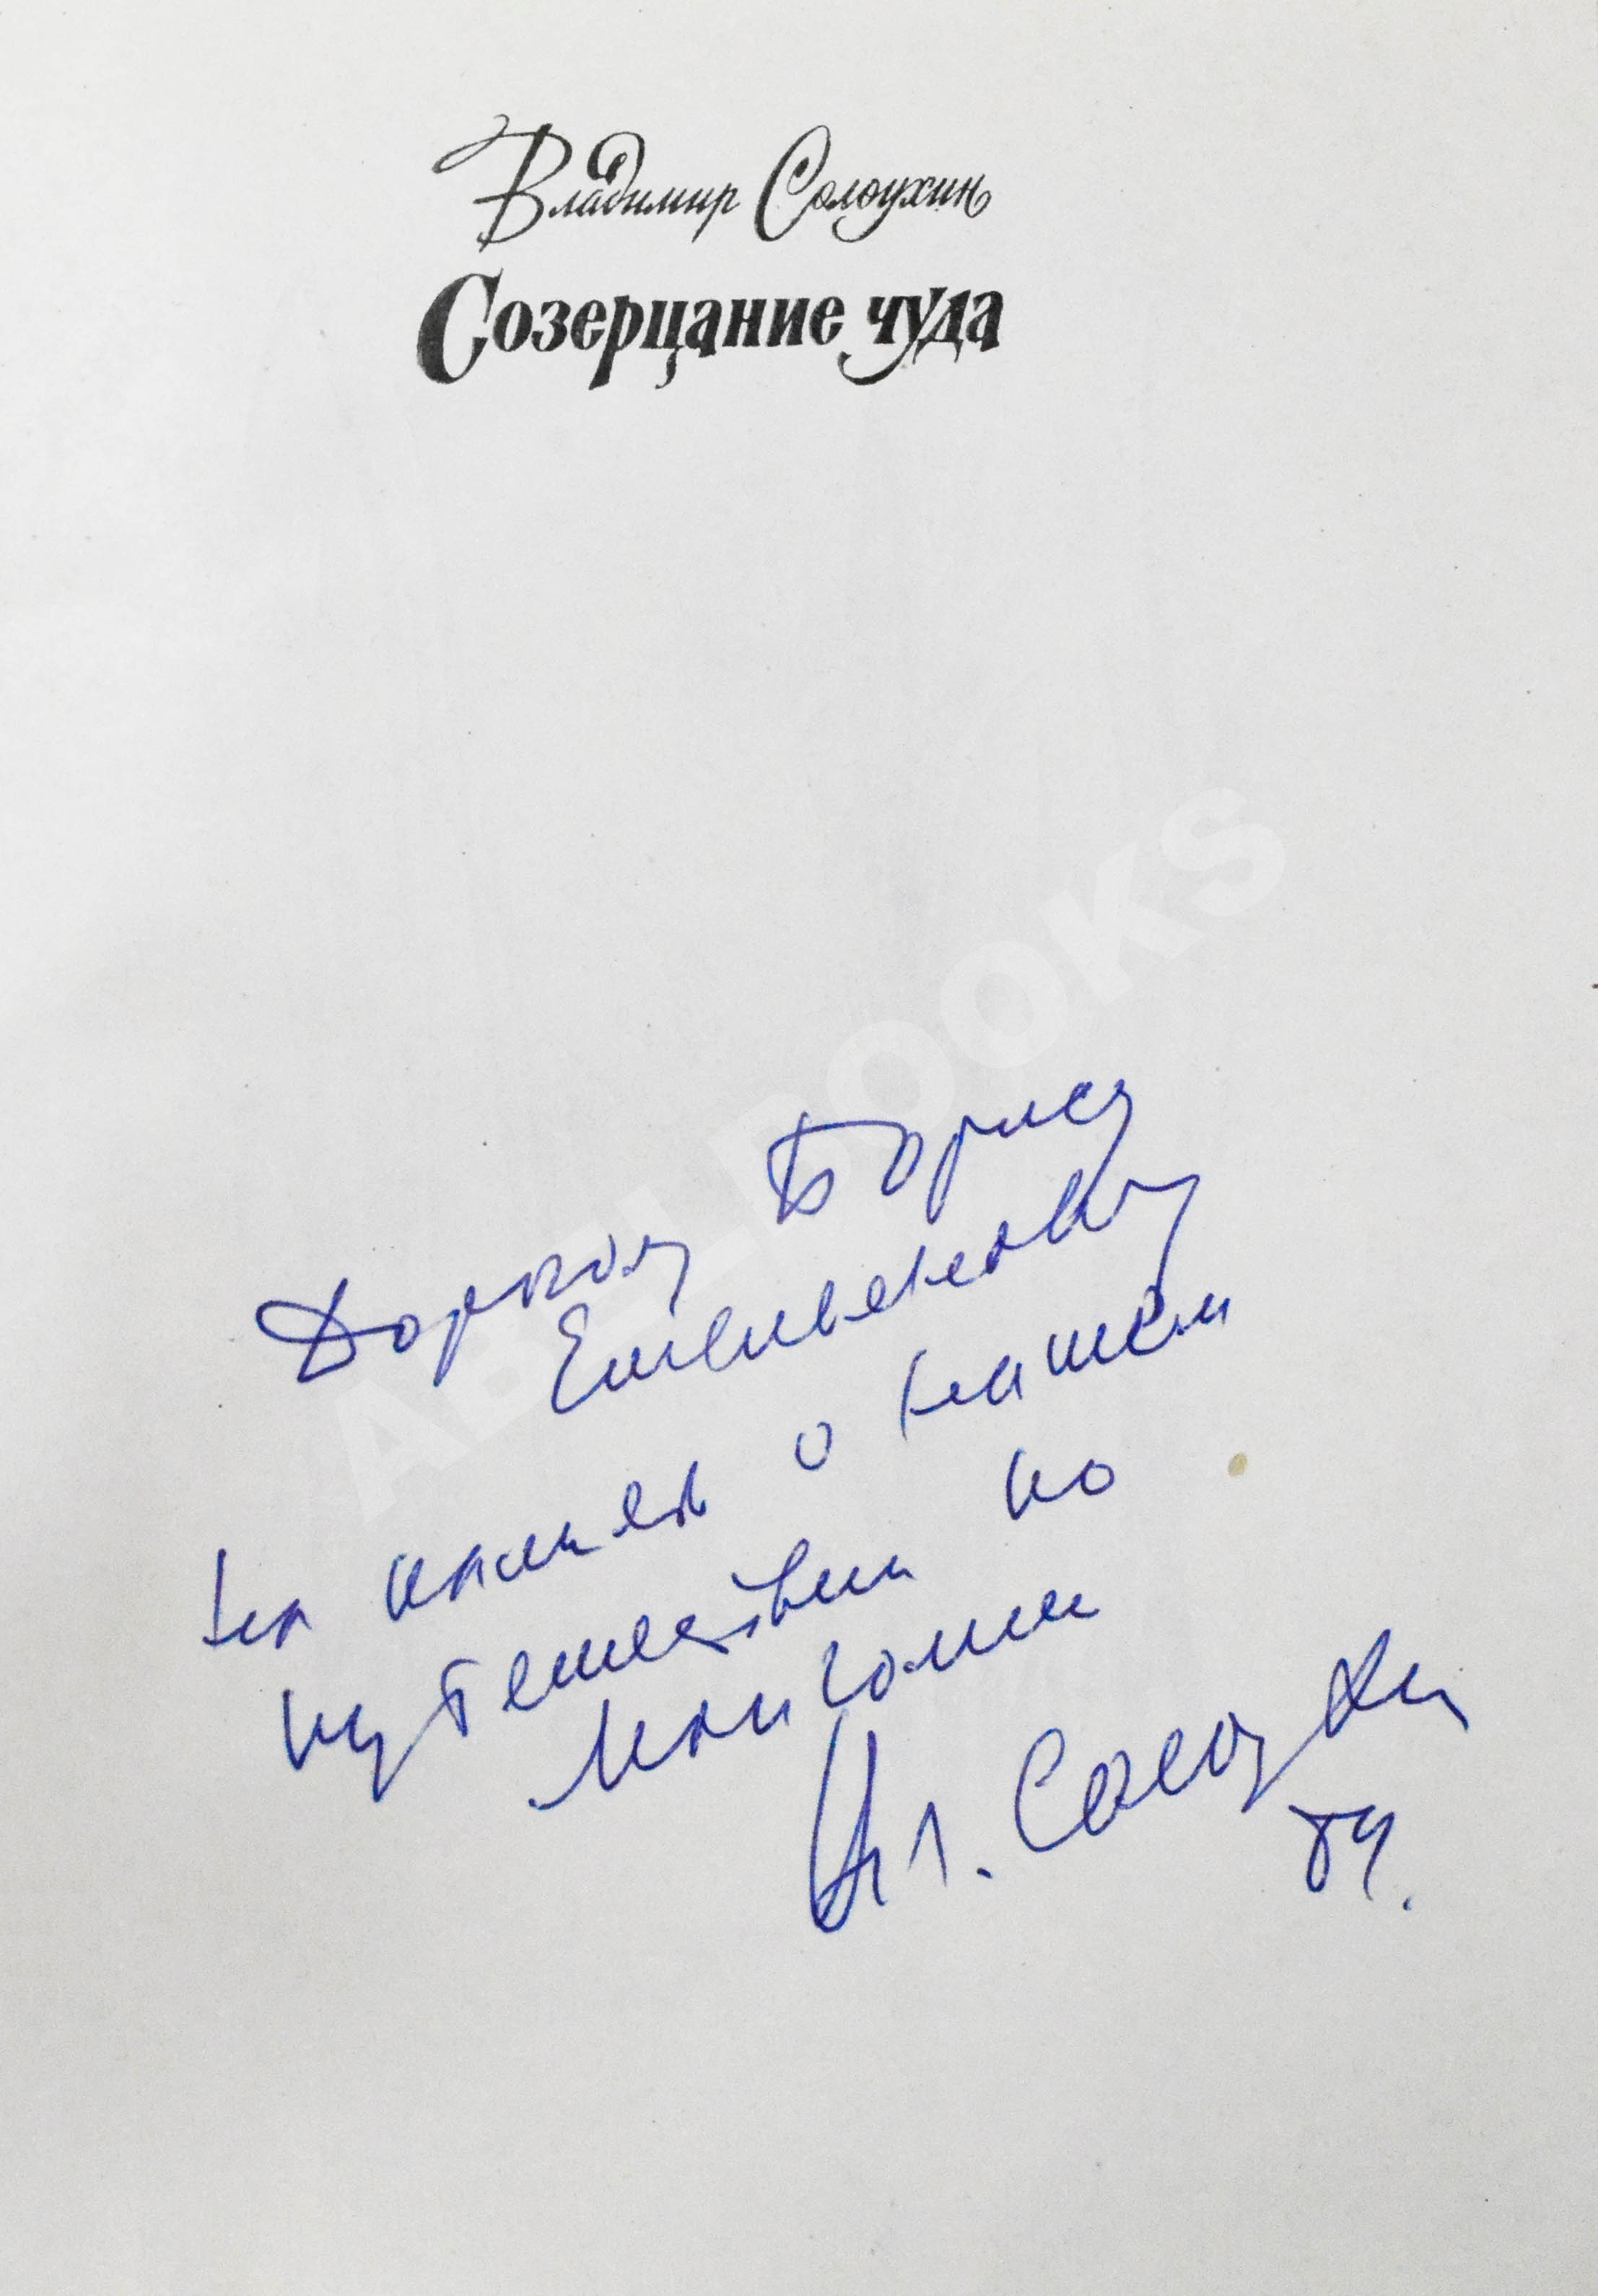 Владимир Солоухин
Созерцание чуда
Дорогому Борису
Емельяновичу
на память о нашем
путешествии по
Монголии
Вл. Солоухин
84.
ABELBOOKS